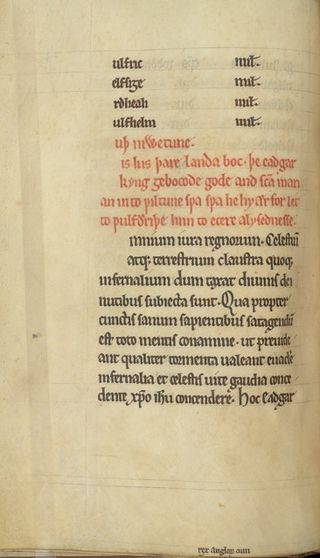 ulfric miɫ.
elfsige miɫ.
ulfhelm miɫ.
is his þare landa boc. þe eadgar
kyng gebocode gode and sc̄a mari
an into
to ecere alysednesse.
mnium iura regnorum. Celestiū
atq; terrestrium claustra quoq;
infernalium dum taxat diuinis dei
nutibus subiecta sunt. Qua propter
cunctis sanum sapientibus satagendū
est toto mentis conamine. ut preuide
ant qualiter tormenta ualeant euadere
infernalia et celestis uite gaudia conce
dente xp̄o ihu conscendere. Hoc eadgar
rex anglor cun